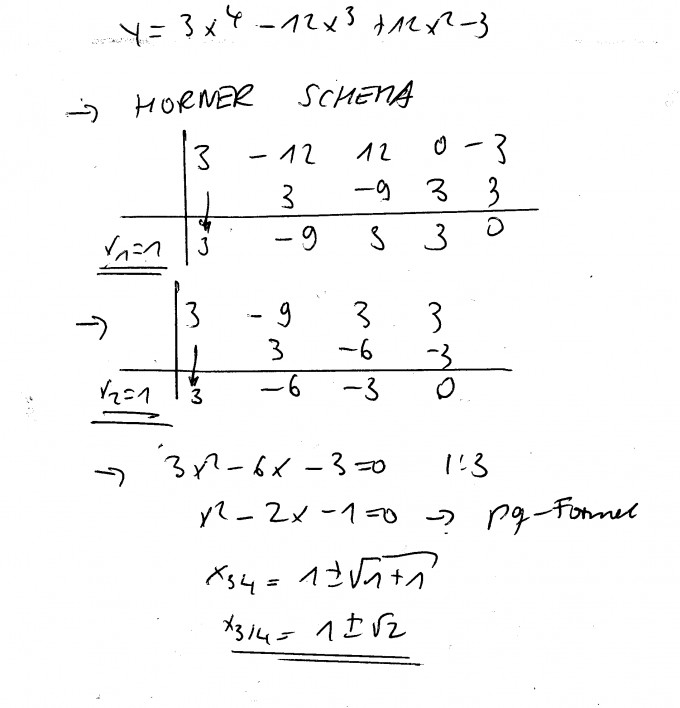 y = 3x⁴ - 12x³ + 12x² - 3
→ HORNER SCHEMA
3 - 12 12 0 - 3
↓ 3 - 9 3 3
x₁=1 3 - 9 3 3 0
→ 3 - 9 3 3
↓ 3 - 6 - 3
x₂=1 3 - 6 - 3 0
→ 3x² - 6x - 3 = 0 |:3
x² - 2x - 1 = 0 → pq-Formel
x₃₄ = 1 ± √1+1
x₃/₄ = 1 ± √2